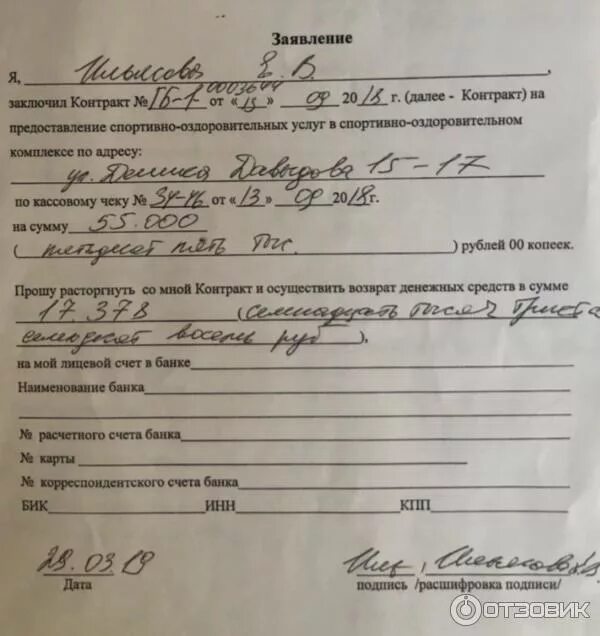 Заявление
Я, Ильясова Е. В.
заключил Контракт № ГБ-1 0003644 от «13» 09 2018 г. (далее - Контракт) на
предоставление спортивно-оздоровительных услуг в спортивно-оздоровительном
комплексе по адресу:
ул. Дениса Давыдова 15-17
по кассовому чеку № 34-46 от «13» 09 2018г.
на сумму 55.000
( пятьдесят пять тыс. ) рублей 00 копеек.
Прошу расторгнуть со мной Контракт и осуществить возврат денежных средств в сумме
17.378 (семнадцать тысяч триста
семьдесят восемь руб ),
на мой лицевой счет в банке
Наименование банка
№ расчетного счета банка
№ карты
№ корреспондентского счета банка
БИК ИНН КПП
29.03.19 Ильясова
Дата подпись /расшифровка подписи/
ОТЗОВИК